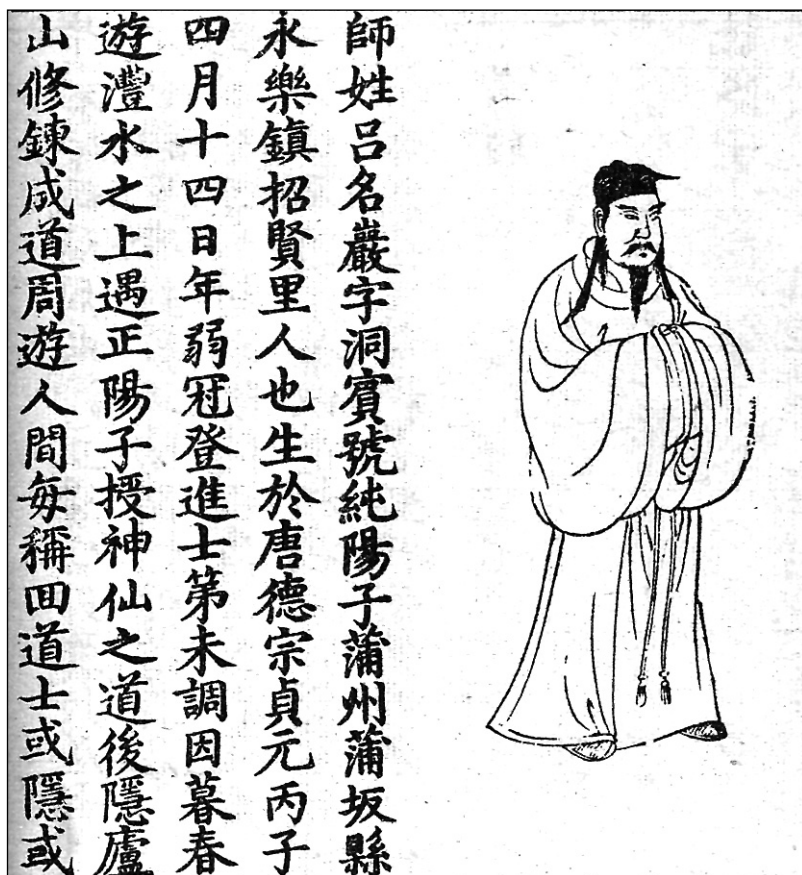 師姓呂名巖字洞賓號純陽子蒲州蒲坂縣
永樂鎮招賢里人也生於唐德宗貞元丙子
四月十四日年弱冠登進士第未調因暮春
遊灃水之上遇正陽子授神仙之道後隱廬
山修鍊成道周遊人間每稱回道士或隱或